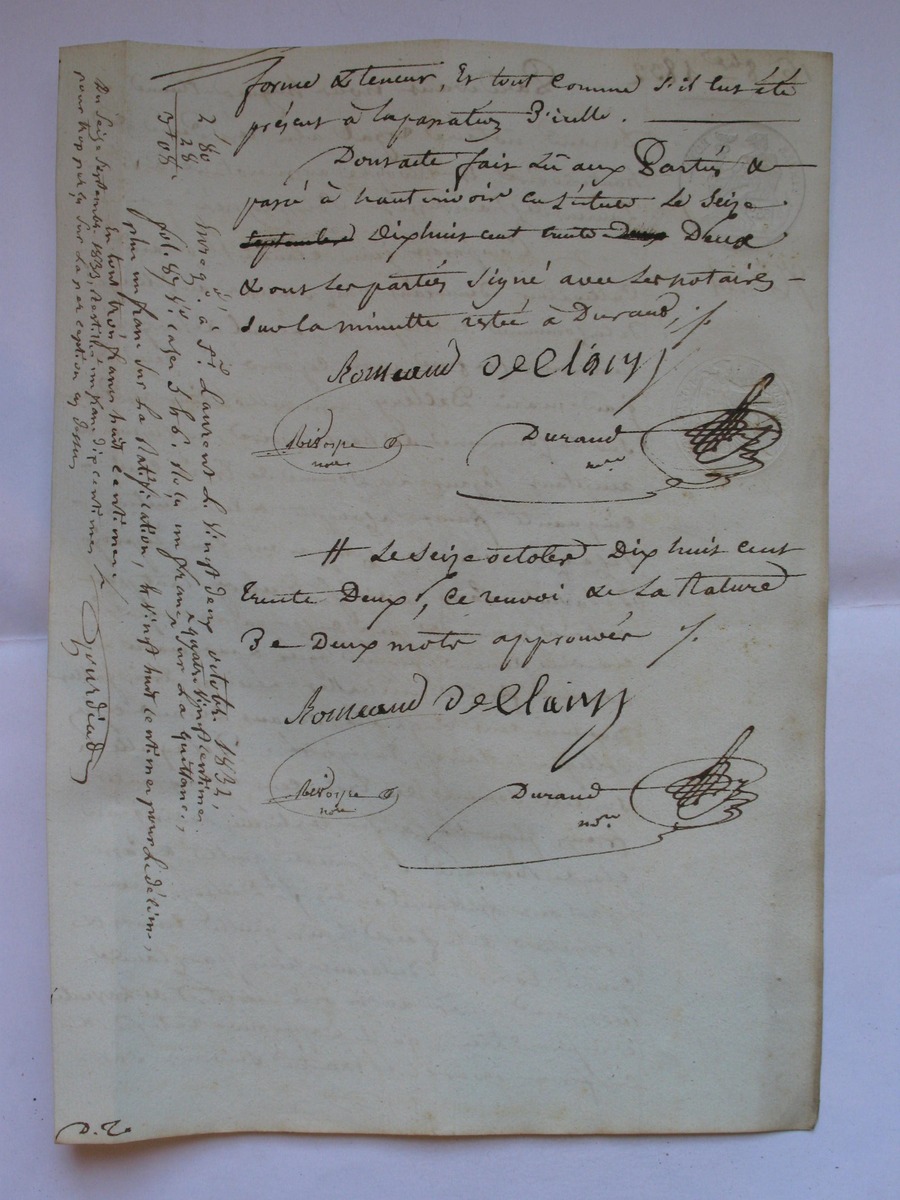 forme & teneur, Et tout comme s'il eut été
présent à la passation d'icelle.
Dont acte fait Lû aux Parties &
passé à hauterivoire en l'étude Le Seize
septembre Dix huit cent trente deux Deux
& ont Les parties Signé avec Les notaires
Sur la minutte restée à Durand, /.
Romeand de Clairy
nore
Durand
nore
# Le Seize octobre Dix huit cent
trente Deux, Ce renvoi & La Rature
De Deux mots approuvés /.
Romeand de Clairy
nore
Durand
nore
2 80
28
3 08
Enregé à St Laurent Le Vingt deux octobre 1832,
fol. 87 Vo cases 5 & 6. Reçu un franc quatre vingt centimes
Sur La quittance,
plus un franc Sur La Ratification, & vingt huit centimes pour Le décime,
En tout trois francs huit centimes.
Du Seize Septembre 1833, Restitué un franc dix centimes
pour trop perçu Sur La perception ci dessus
D. R.